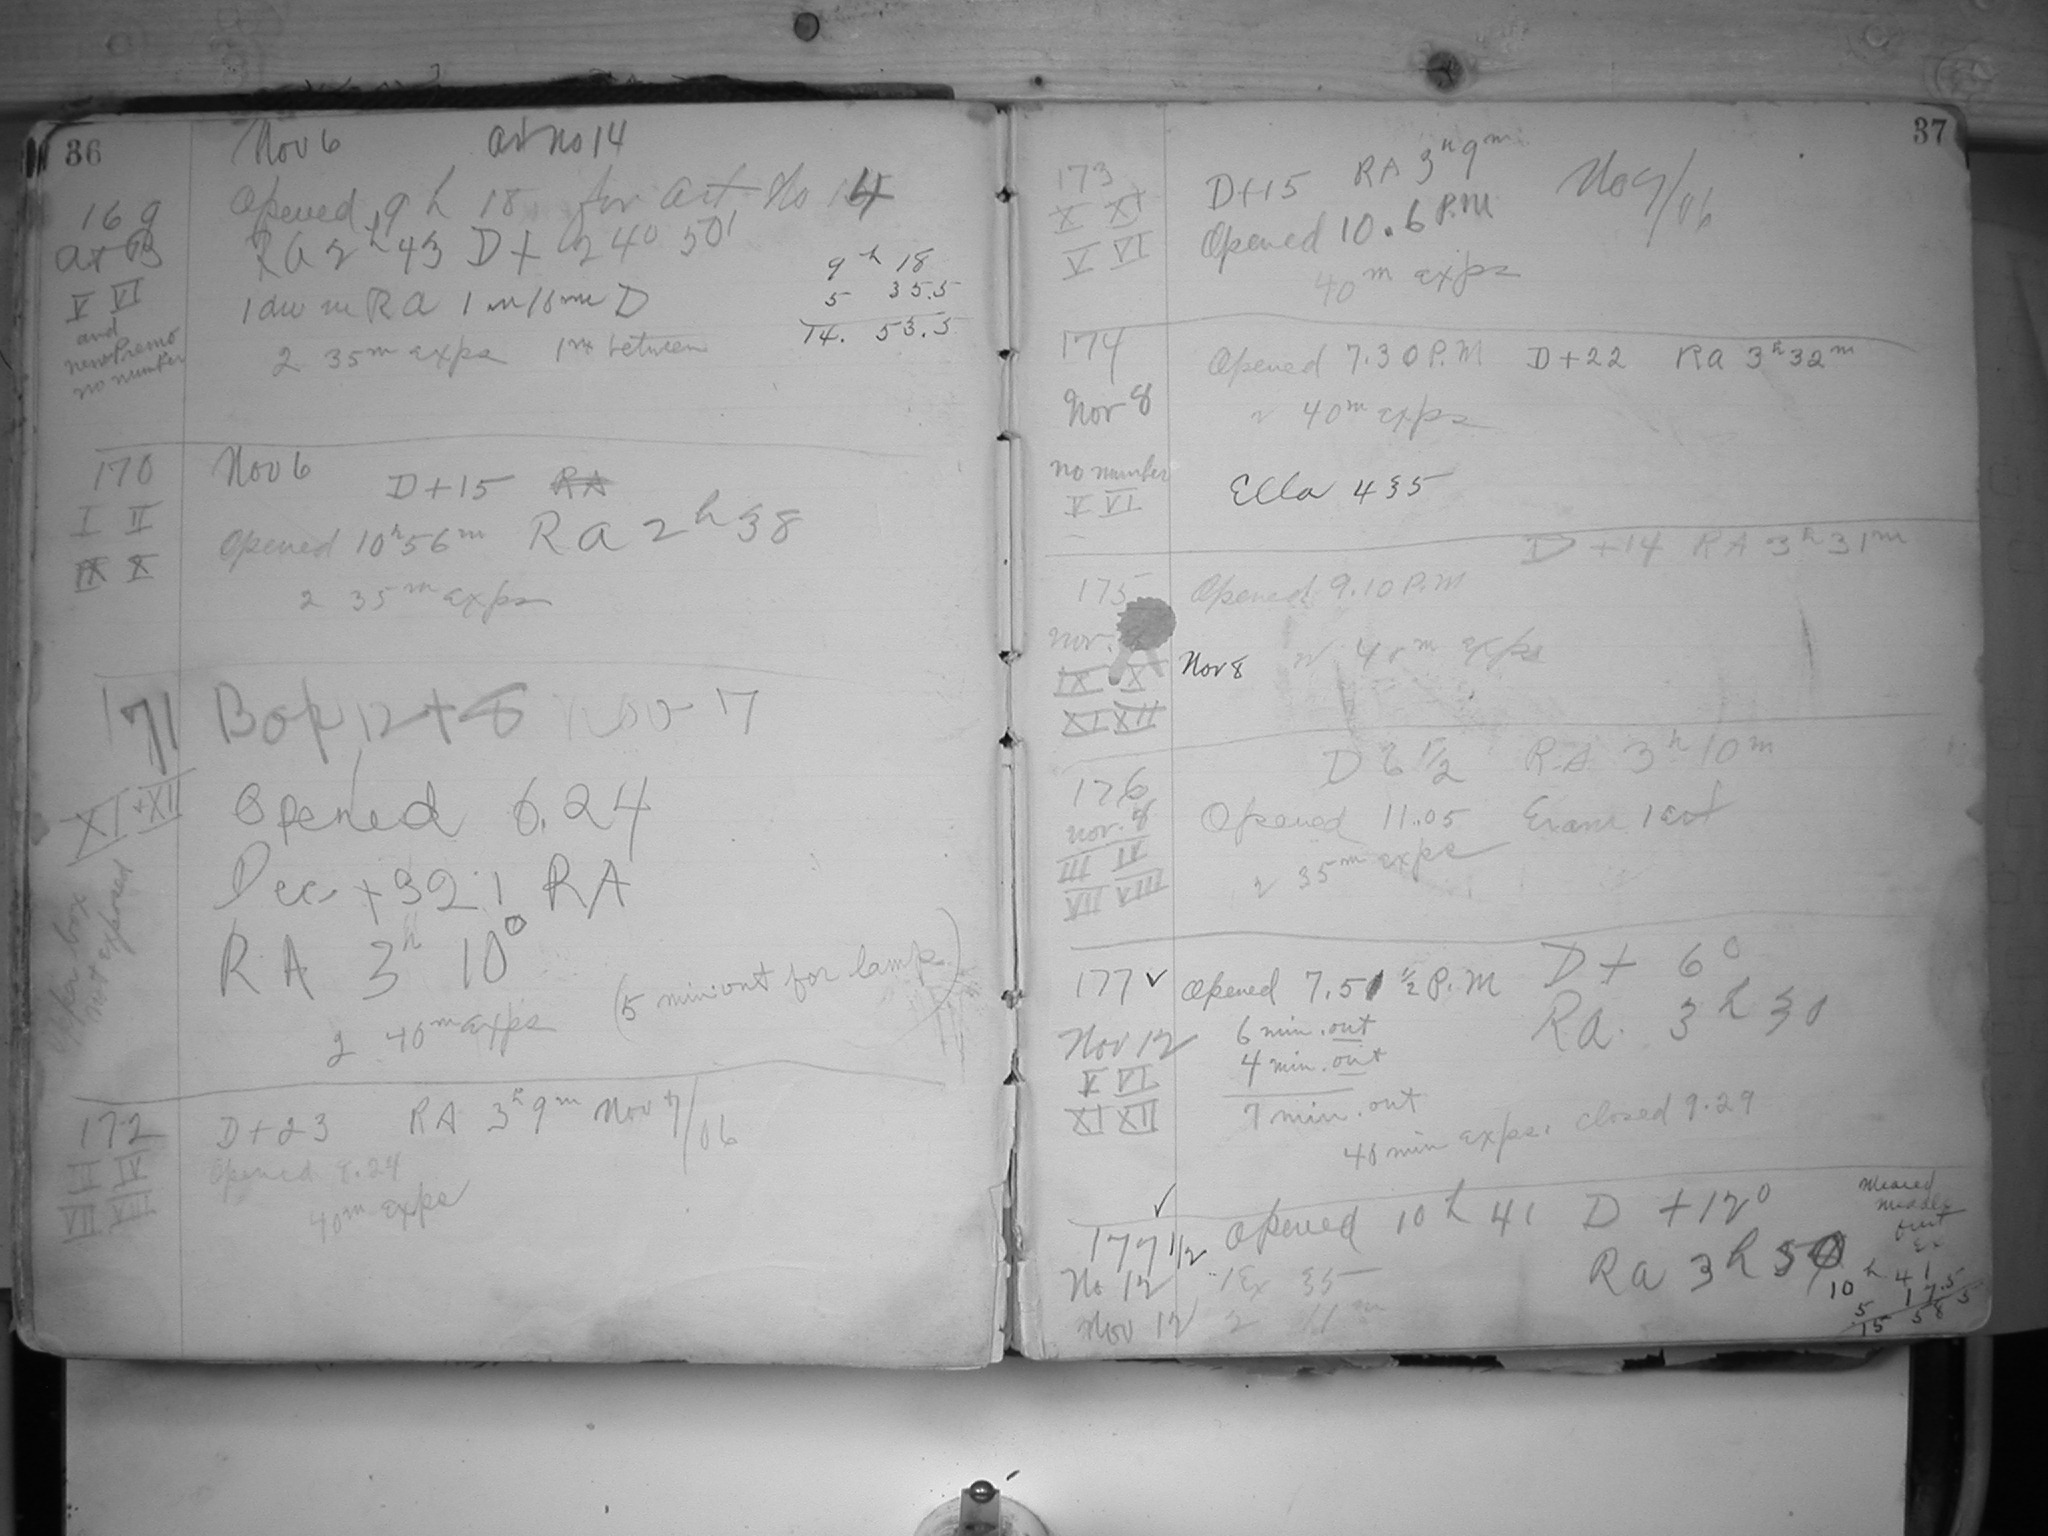 36
Nov 6 Ast No 14
169
A + B
V VI
and
no number
Opened 9 h 18 for Ast No 14
RA 2h 43 D + 24° 50'
9 h 18
5 35.5
14. 53.5
2 35m exps 1m between
170
I II
IX X
Nov 6 D+15 RA
Opened 10h 56m Ra 2h 38
2 35m exps
171
XI + XII
Upper box
not exposed
Nov 7
Opened 6.24
Dec +32.1 RA
RA 3h 10°
2 40m exps (5 min out for lamps)
172
IV
VII VIII
D+23 RA 3h 9m Nov 7/06
Opened 8.24
40m exps
37
173
X XI
V VI
D+15 RA 3h 9m No 7/06
Opened 10.6 P.M
40m exps
174
Nov 8
no number
V VI
Opened 7.30 P.M D+22 Ra 3h 32m
2 40m exps
Ella 435
175
Nov.
IX X
XI XII
D+14 RA 3h 31m
Opened 9.10 P.M
Nov 8 2 40m exps
176
Nov. 8
III IV
VII VIII
D 6 1/2 RA 3h 10m
Opened 11.05
2 35m exps
177 ✓
Nov 12
V VI
XI XII
Opened 7.51 1/2 P.M D + 6°
Ra. 3h 30
6 min. out
4 min. out
7 min. out
40 min exps. closed 9.29
✓
177 1/2
No 12
Nov 12
Opened 10 h 41 D +12°
Ra 3h 50
1 Ex 35
2 11m
Ex
10 h 41
5 17.5
15 58 5